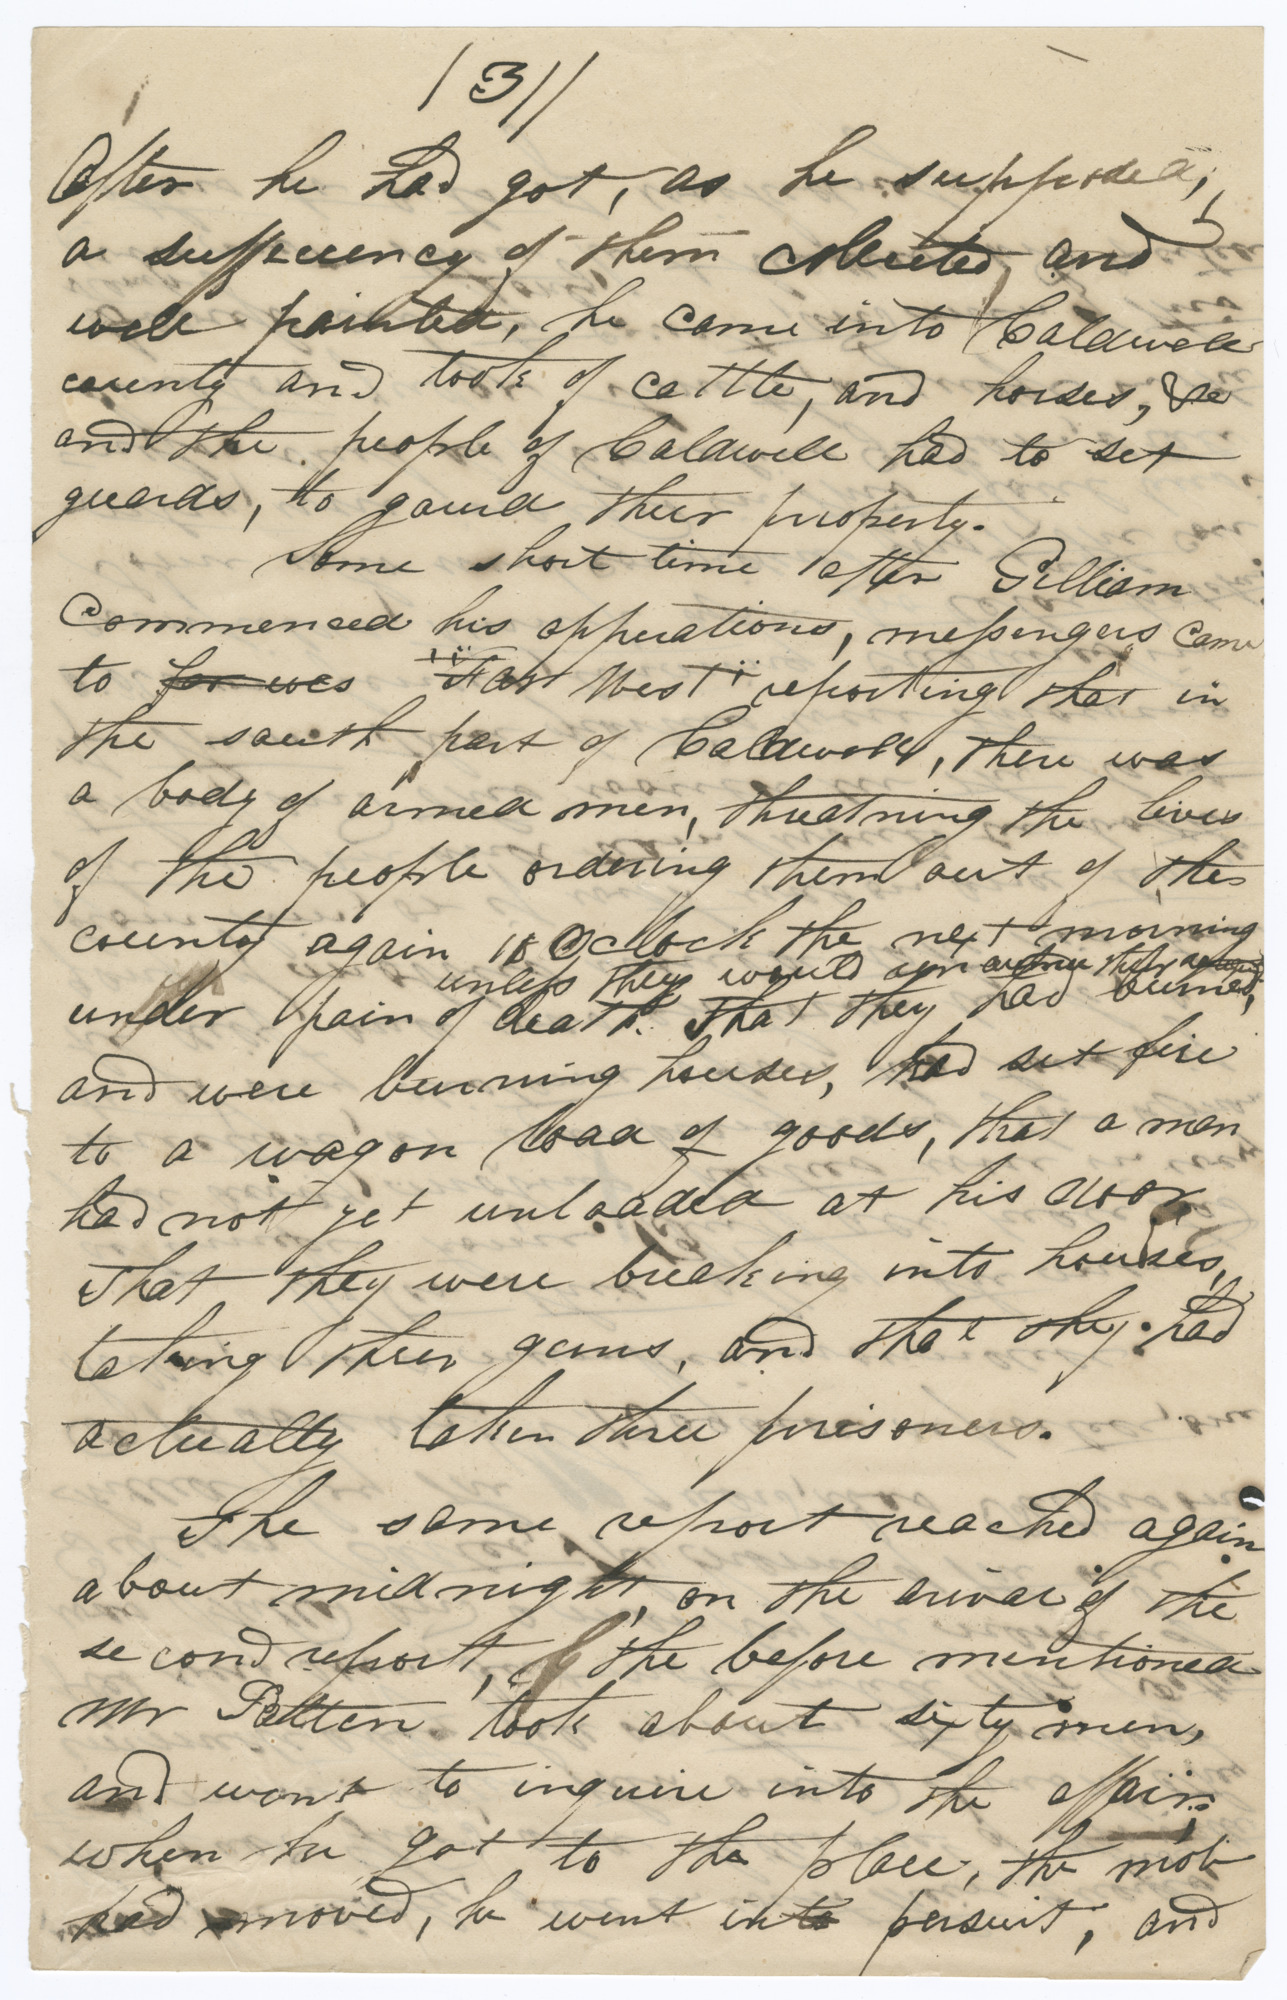 / 3 //
After he had got, as he supposed,
a suffiuency of them collected, and
well painted, he came into Caldwell
county and took of cattle, and horses, &c
and the people of Caldwell had to set
guards, to gaurd their property.
Some short time after Gilliam
Commenced his opperations, messengers came
to far wes "Far West" reporting that in
the south part of Caldwell, there was
a body of armed men, threatning the lives
of the people ordering them out of the
county again 10 O,clock the next morning
unless they would their
under pain of death. That they had burned,
and were burning houses, had set fire
to a wagon load of goods, that a man
had not yet unloaded at his door,
That they were breaking into houses,
taking their guns, and that they had
actually taken three prisoners.
The same report reached again
about midnight, on the arival of the
second report, the before mentioned
Mr Patten took about sixty men,
and went to inquire into the affair,
when he got to the place, the mob
had moved, he went into persuit, and